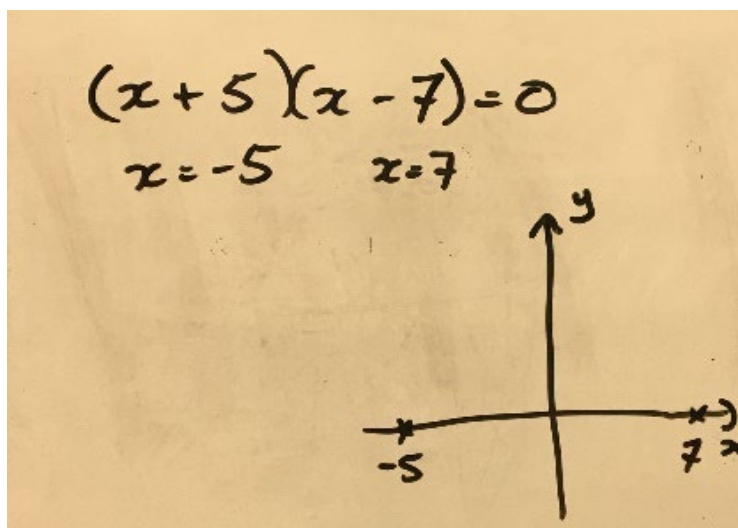 (x + 5)(x - 7) = 0
x = -5 x = 7
y
-5 7 x